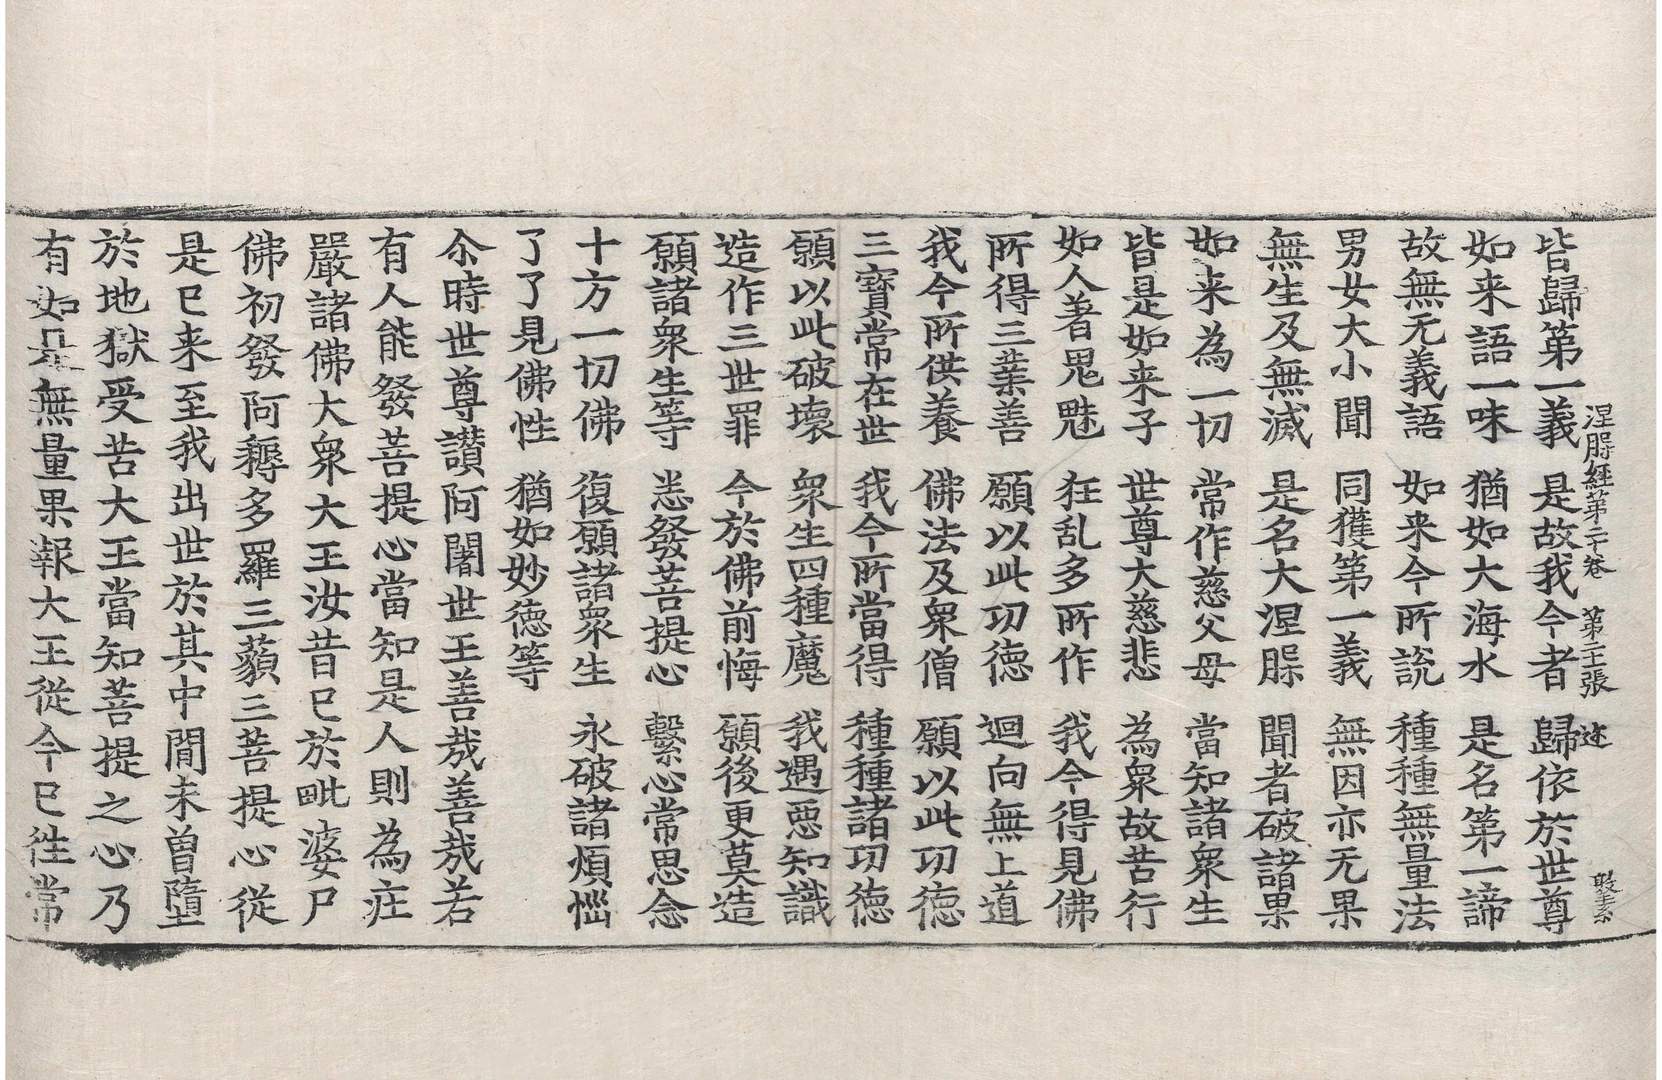 涅槃經第二十卷 第二十張 迹
皆歸第一義 是故我今者 歸依於世尊
如来語一味 猶如大海水 是名第一諦
故無无義語 如来今所說 種種無量法
男女大小聞 同獲第一義 無因亦无果
無生及無滅 是名大涅槃 聞者破諸果
如来為一切 常作慈父母 當知諸衆生
皆是如来子 世尊大慈悲 為衆故苦行
如人著鬼魅 狂乱多所作 我今得見佛
所得三業善 願以此功徳 迴向無上道
我今所供養 佛法及衆僧 願以此功徳
三寶常在世 我今所當得 種種諸功徳
願以此破壞 衆生四種魔 我遇惡知識
造作三世罪 今於佛前悔 願後更莫造
願諸衆生等 悉發菩提心 繫心常思念
十方一切佛 復願諸衆生 永破諸煩惱
了了見佛性 猶如妙徳等
尒時世尊讃阿闍世王善㢤善㢤若
有人能發菩提心當知是人則為庄
嚴諸佛大衆大王汝昔已於毗婆尸
佛初發阿耨多羅三藐三菩提心從
是已来至我出世於其中間未曾墮
於地獄受苦大王當知菩提之心乃
有如是無量果報大王從今已往常